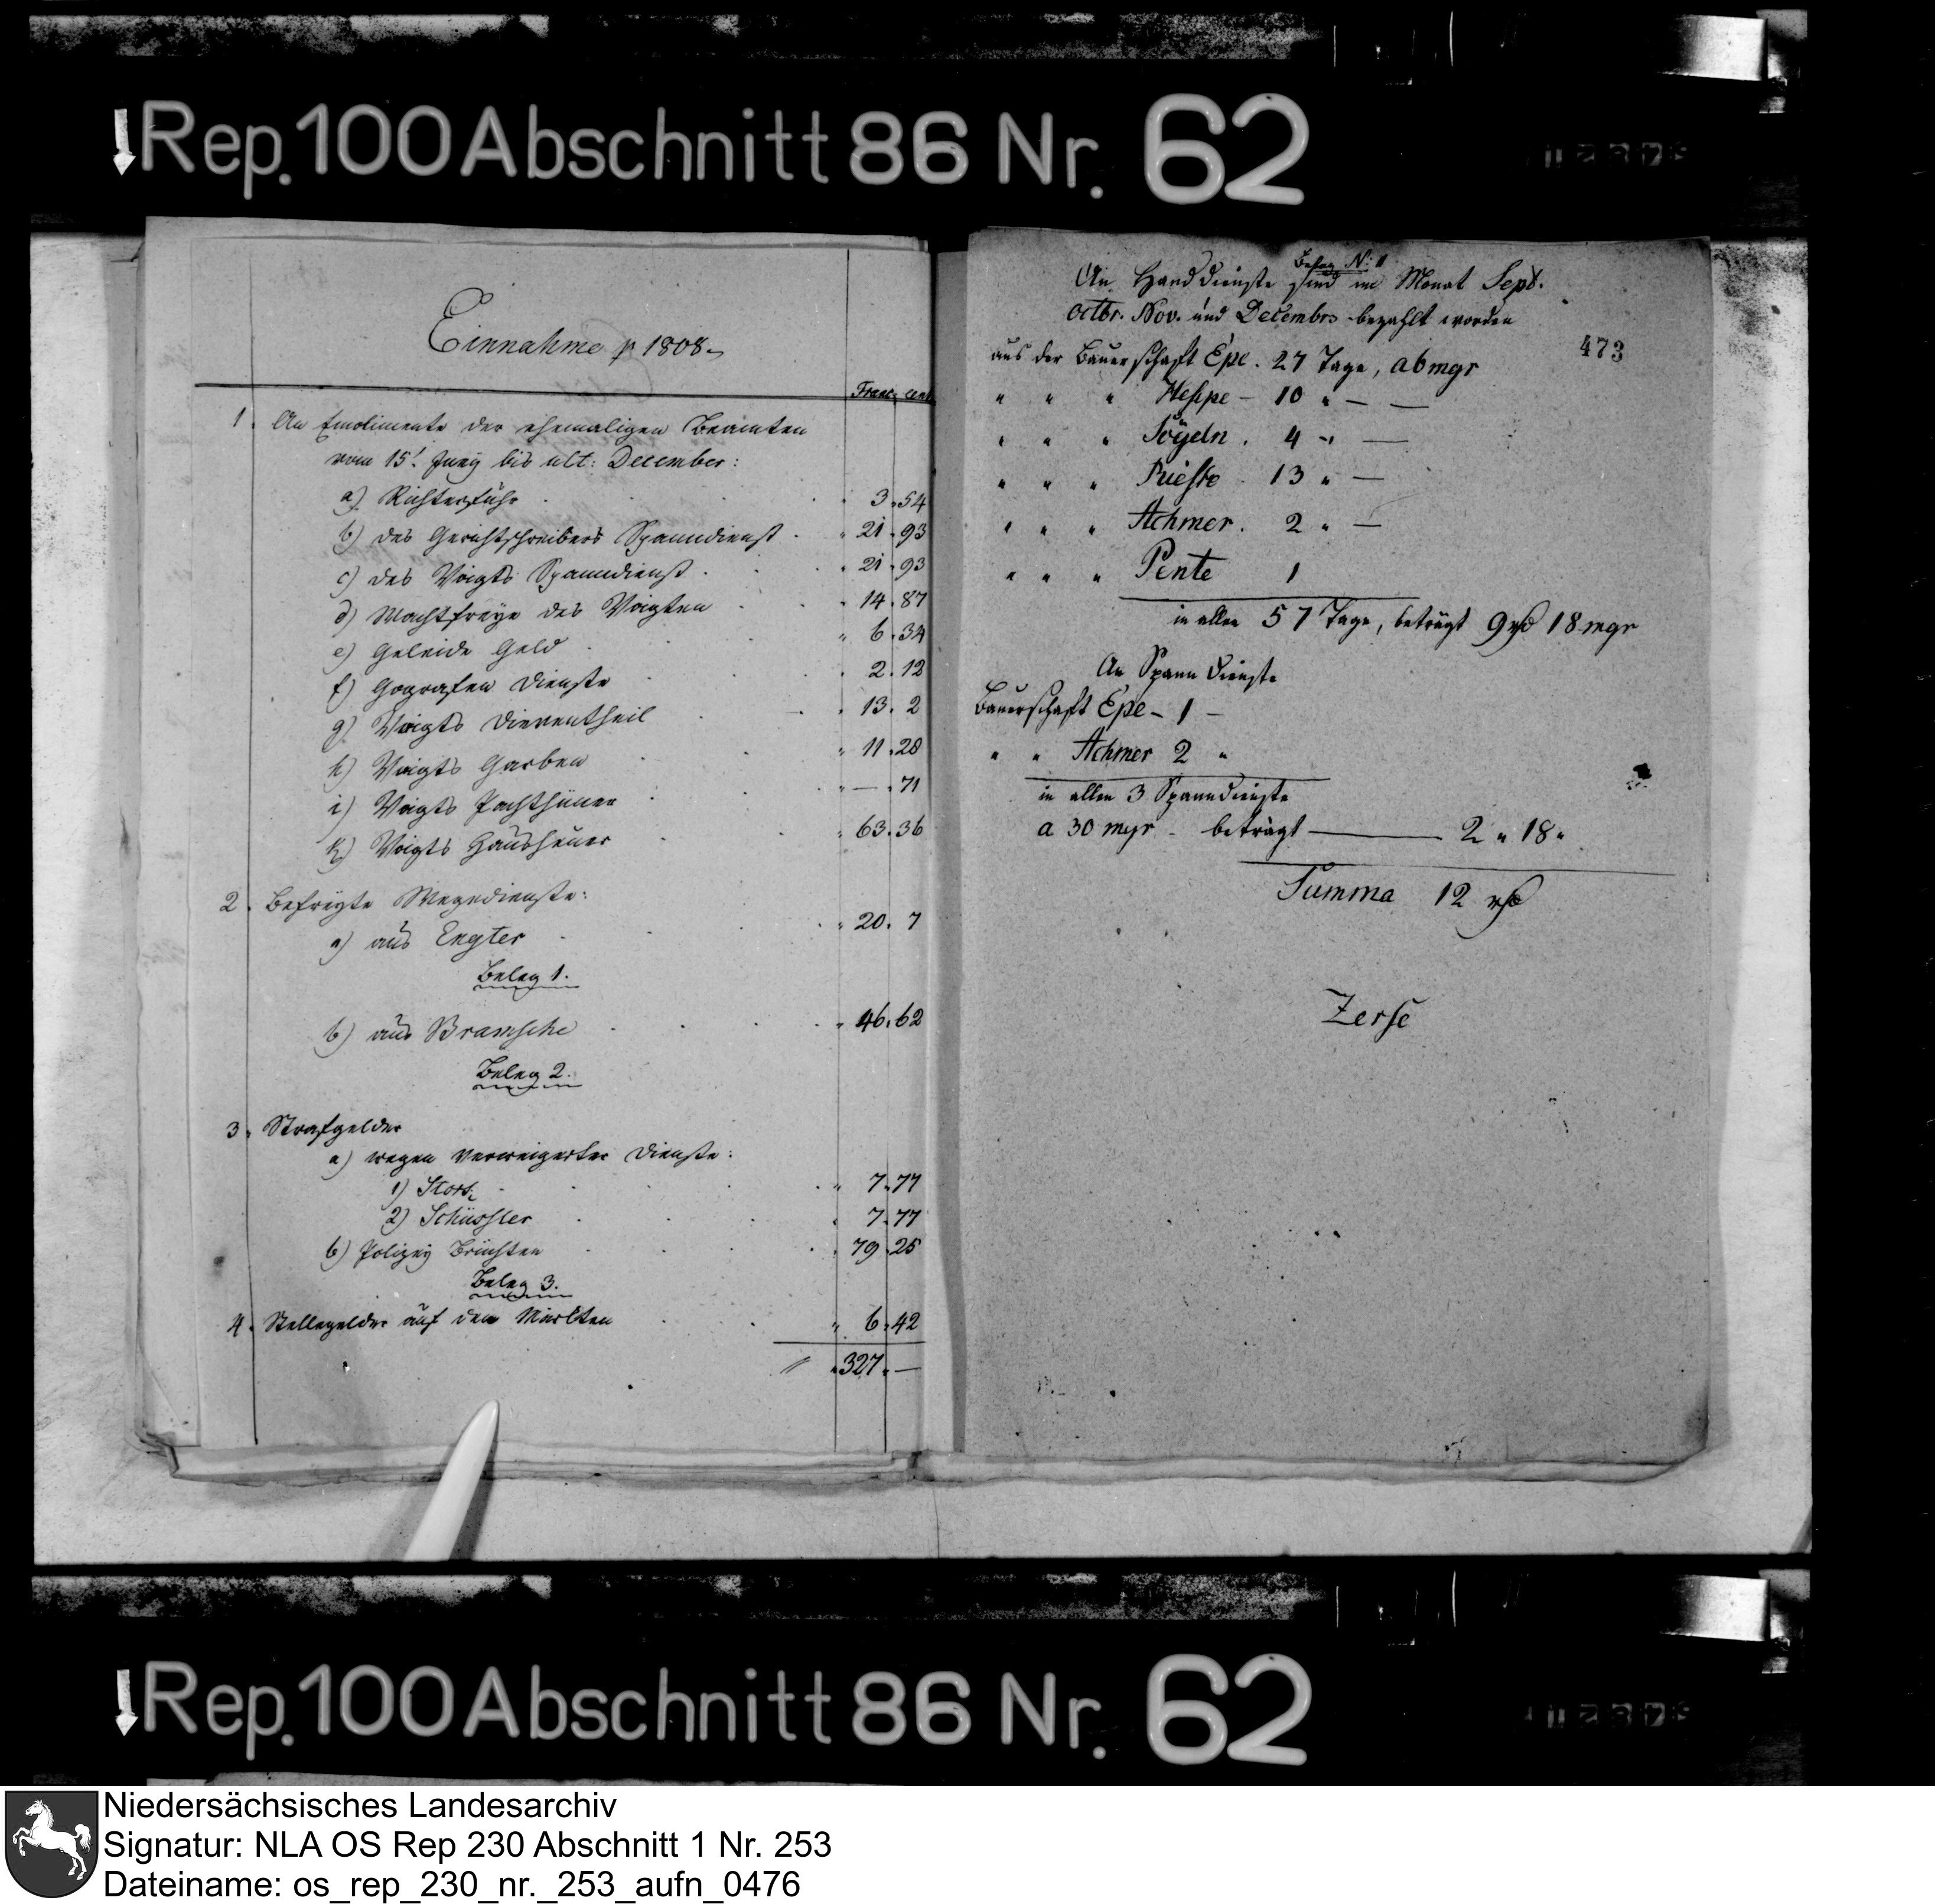 Rep. 100 Abschnitt 86 Nr. 62
Einnahme p 1808
Franc. cent
1. An Emolumente der ehemaligen Beamten
vom 15t. Juny bis ult: December:
a) Richterfuhr 3. 54
b) des Gerichtschreibers Spanndienst 21. 93
c) des Voigts Spanndienst 21. 93
d) Wachtfreye des Voigten 14. 87
e) Geleide Geld 6. 34
f) Gografen Dienste 2. 12
g) Voigts Dieventheil 13. 2
h) Voigts Garben 11. 28
i) Voigts Pachthüner — 71
k) Voigts Haushüner 63. 36
2. Wegedienste:
a) aus Engter 20. 7
Beleg 1.
b) aus Bramsche 46. 62
Beleg 2.
3. Strafgelder
a) wegen verweigerter Dienste:
1) 7. 77
2) Schüssler 7. 77
b) Polizey Brüchten 79. 25
Beleg 3.
4. Stellegelder auf den Märkten 6. 42
327. —
Beleg N: 1
An Handdienste sind im Monat Sept.
octbr. Nov. und Decembrs bezahlt worden
473
aus der Bauerschaft Epe. 27 Tage, a 6 mgr
" " " Hespe – 10 " — —
" " " Sögeln. 4 " —
" " " 13 " —
" " " Achmer. 2 " —
" " " Pente 1
in allen 57 Tage, beträgt 9 rth 18 mgr
An Spann Dienste
Bauerschaft Epe – 1 –
" " Achmer 2 "
in allen 3 Spanndienste
a 30 mgr - beträgt — 2 " 18 "
Summa 12 rth
Zerse
Rep. 100 Abschnitt 86 Nr. 62
Niedersächsisches Landesarchiv
Signatur: NLA OS Rep 230 Abschnitt 1 Nr. 253
Dateiname: os_rep_230_nr._253_aufn_0476